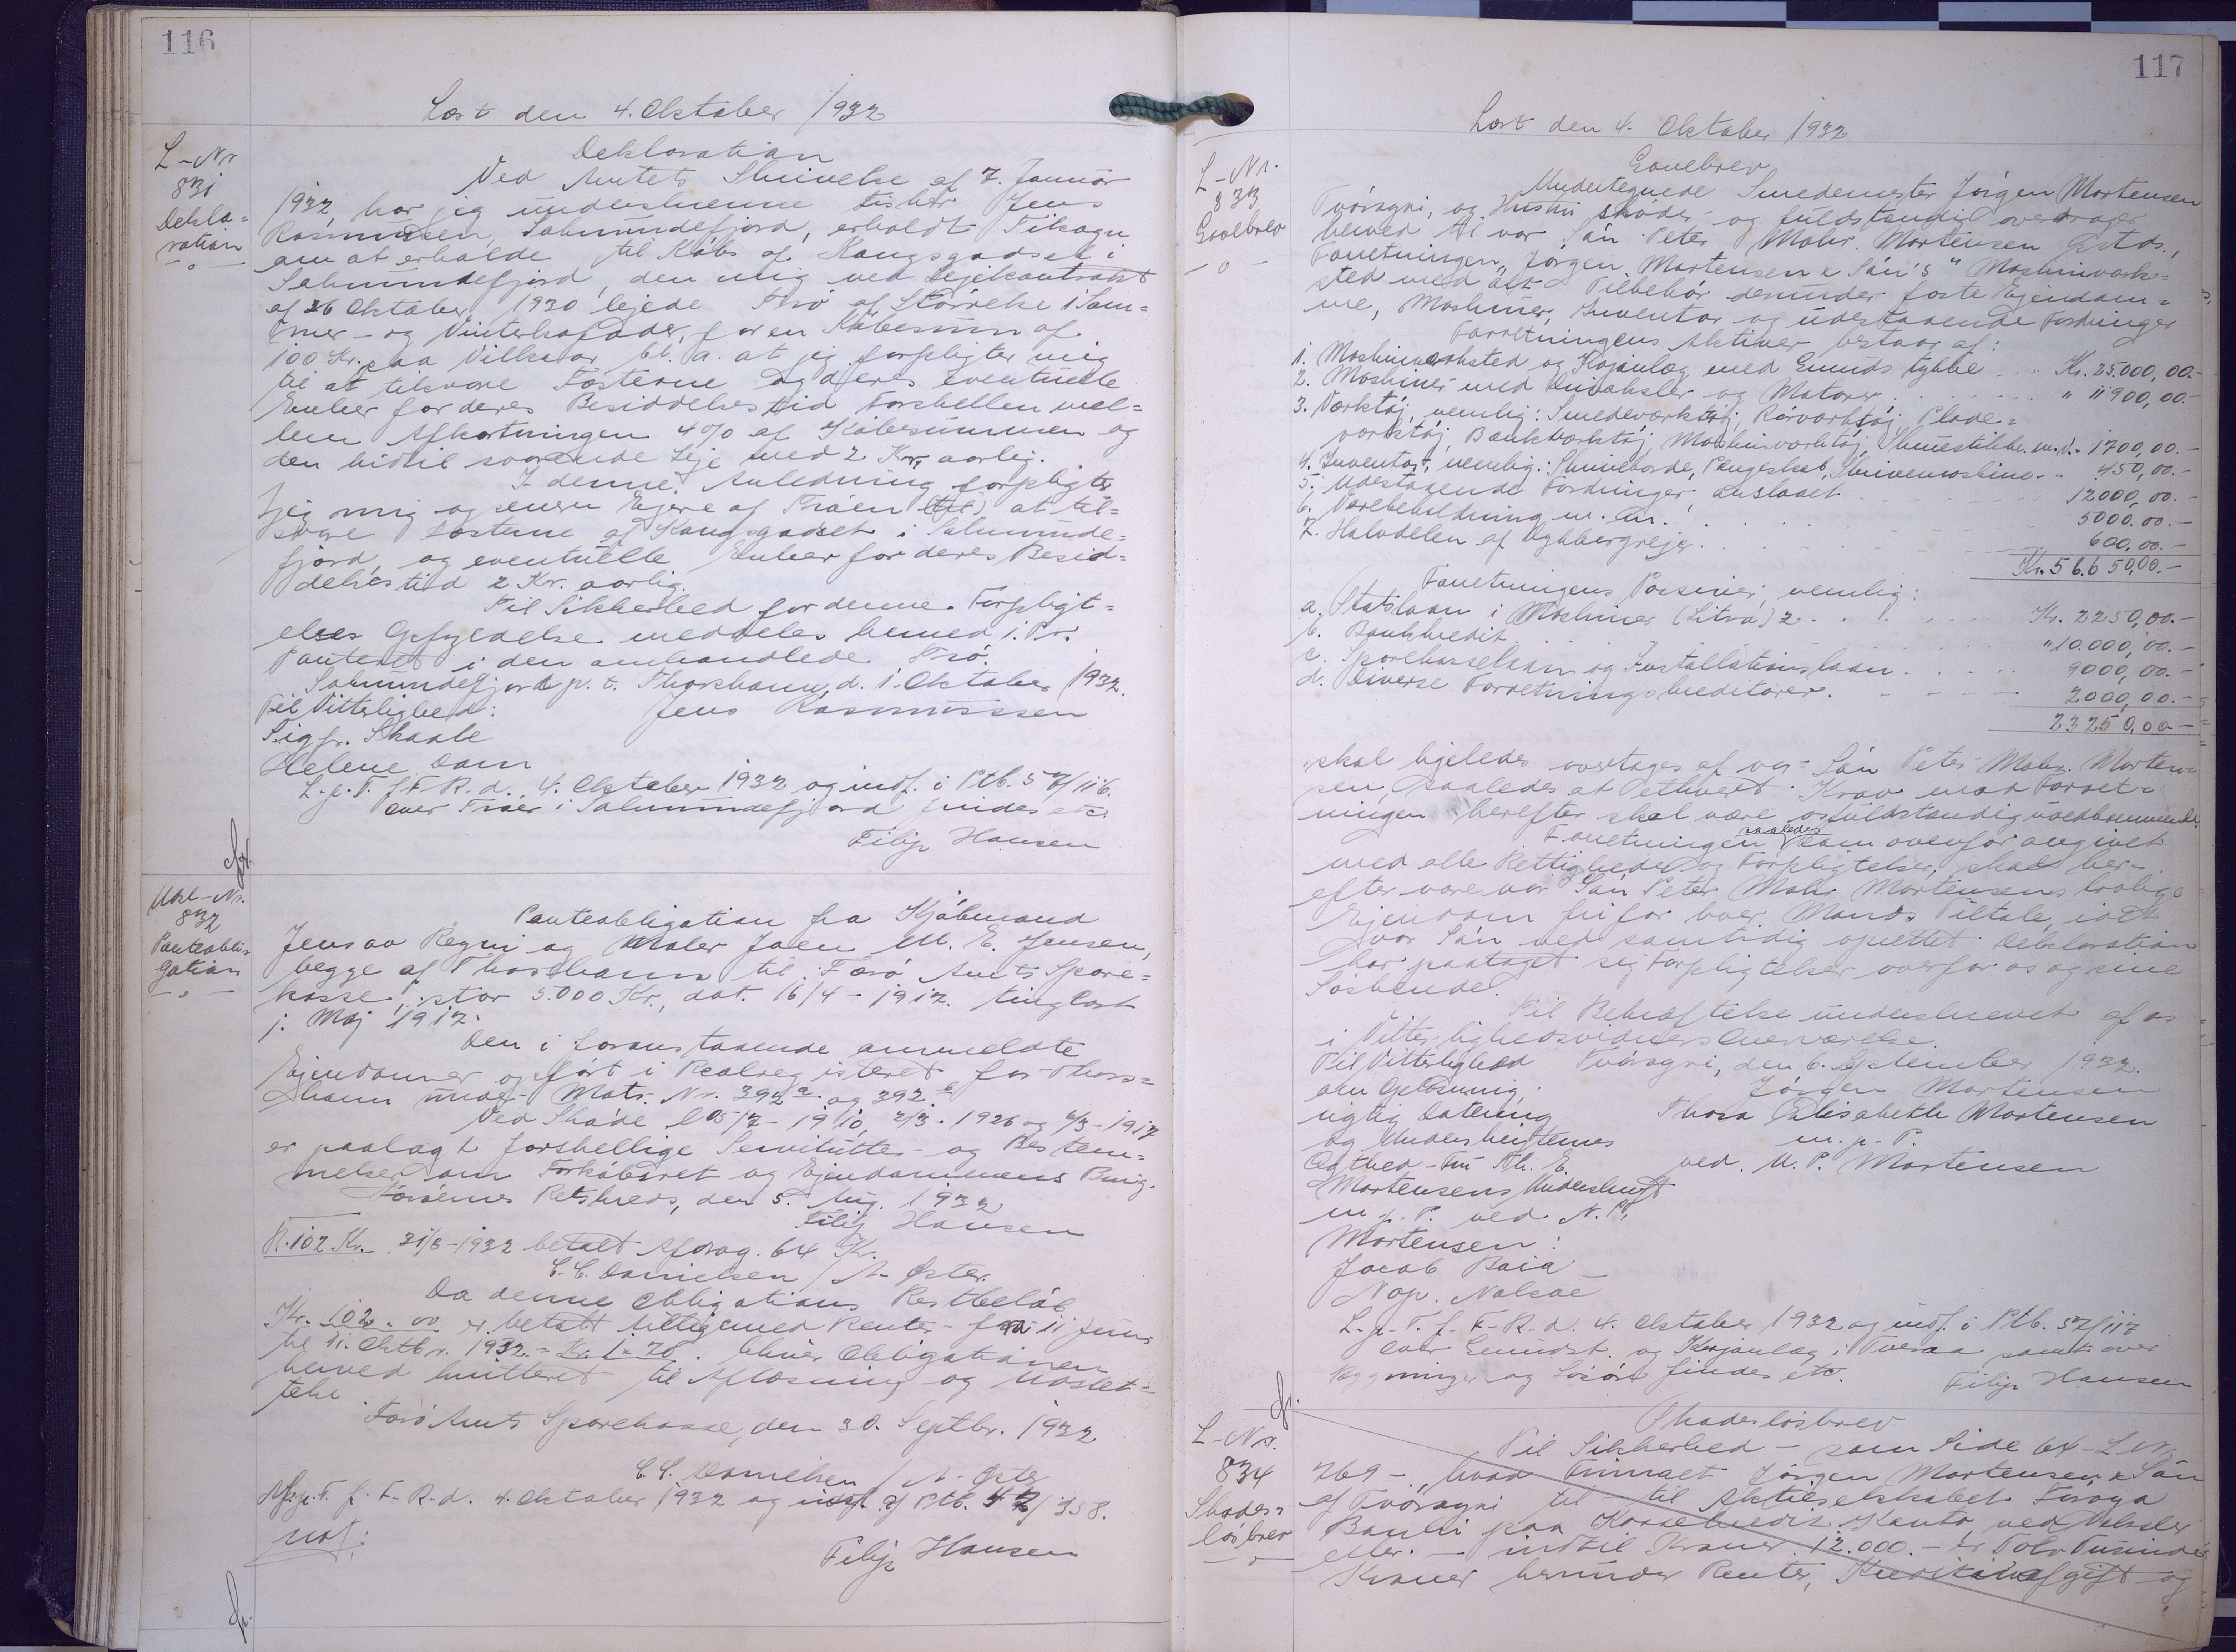 116
Læst den 4. Oktober 1932
L-Nr
831
Dekla=
ration
Deklaration
Ved Amtets Skrivelse af 7. Januar
1932, har jeg underskrevne Fisker Jens
Rasmussen, Salmundefjord, erholdt Tilsagn
om at erholde til Købs af Kongsgodset i
Salmundefjord, den mig ved Lejekontrakt
af 26 Oktober 1920 lejede Trø af Størrelse 1 Som=
mer- og Vinterkofoder, for en Købesum af
100 Kr. paa Vilkaar bl. a. at jeg forpligter mig
til at tilsvare Fæsterne og deres eventuelle
Enker for deres Besiddelsestid Forskellen mel=
lem Afkortningen 4% af Købesummen og
den hidtil svarende Leje med 2 Kr. aarlig.
I denne Anledning forpligter
jeg mig og senere Ejere af Trøen til at til=
svare Fæsterne af Kongsgodset i Salmunde=
fjord, og eventuelle Enker for deres Besid=
delsestid 2 Kr. aarlig.
Til Sikkerhed for denne Forpligt=
elses Opfyldelse meddeles herned 1. Pr.
Panteret i den omhandlede Trø.
Salmundefjord p. t. Thorshavn, d. 1. Oktober 1932.
Til Vitterlighed: Jens Rasmussen
Sigfr. Skaale
Helene Dam
L. p. T. f. F. R. d. 4. Oktober 1932 og indf. i Ptb. 57/116.
over Trøer i Salmundefjord findes etc.
Filip Hansen
Udsl-Nr.
832
Panteobli=
gation
Panteobligation fra Kjøbmand
Jens av Reyni og Maler Joen M. E. Jensen,
begge af Thorshavn til Færø Amts Spare=
kasse, stor 5.000 Kr., dat. 16/4-1917. tinglæst
1. Maj 1917.
Den i foranstaaende anmeldte
Ejendommer opført i Realregisteret for Thors=
havn under Mats. Nr. 392a og 392b
Ved Skøde læst 5/7-1910, 2/3-1926 og 4/3-1917
er paalagt forskellige Servitutter- og Bestem=
melser om Forkøbsret og Ejendommens Brug.
Færøernes Retskreds, den 5. Aug. 1932
Filip Hansen
R. 102 Kr. 31/8-1932 betalt Afdrag. 64 Kr.
C.C. Danielsen / A. Øster.
Da denne Obligations Restbeløb
Kr. 102.00 er betalt tilligemed Renter- fra 11 Juni
til 11. Oktbr. 1932.= Kr. 1.70. bliver Obligationen
herved kvitteret til Aflæsning og Udslet=
telse.
Færø Amts Sparekasse, den 30. Septbr. 1932
C.C. Danielsen / A. Øster
Afl. p. T. f. F. R. d. 4. Oktober 1932 og udsl. af Ptb. 42/358.
Filip Hansen
117
Læst den 4. Oktober 1932
L-Nr.
833
Gavebrev
Gavebrev
Undertegnede Smedemester Jørgen Mortensen
Tvøragri, og Hustru skøder- og fuldstændig overdrager
herved til vor Søn Peter Mohr Mortensen Gstds.,
Forretningen "Jørgen Mortensen & Søn's" Maskinværk=
sted med alt Tilbehør derunder faste Ejendom=
me, Maskiner, Inventar og udestaaende Fordringer
Forretningens Aktiver bestaar af:
1. Maskinværksted og Kajanlæg med Grundstykke .. Kr. 25.000,00.-
2. Maskiner med Drivaksler og Motorer. . . . . " 11900,00.-
3. Værktøj, nemlig: Smedeværktøj, Rørværktøj, Plade=
værktøj, Bænkværktøj, Maskinværktøj, Skruestikke m.v.- 1700,00.-
4. Inventar, nemlig: Skriveborde, Pengeskab, Skrivemaskine - 450,00.-
5. Udestaaende Fordringer, anslaaet . . . 12000,00.-
6. Varebeholdning m. m. . . . 5000.00.-
7. Halvdelen af Dykkergrejer. . . . 600,00.-
Kr. 56.650,00.-
Forretningens Passiver, nemlig:
a. Statslaan i Maskiner (Litra) 2 . . . Kr. 2250,00.-
b. Bankkredit . . . " 10.000,00.-
c. Sparekasselaan og Installationslaan . . . 9000,00.-
d. Diverse Forretningskreditorer. . . . 2000,00.-
23250,00-
skal ligeledes overtages af vor Søn Peter Mohr Morten=
sen, saaledes at ethvert Krav mod Forret=
ningen herefter skal være os fuldstændig uvedkommende.
Forretningen saaledes som ovenfor angivet
med alle Rettigheder og Forpligtelser, skal her=
efter være vor Søn Peter Mohr Mortensens lovlige
Ejendom fri for hver Mands Tiltale, idet
vor Søn ved samtidig oprettet Deklaration
har paataget sig Forpligtelser overfor os og sine
Søskende.
Til Bekræftelse underskrevet af os
i Vitterlighedsvidners Overværelse.
Til Vitterlighed Tvøragri, den 6. September 1932.
om Oplæsning, Jørgen Mortensen
rigtig Datering Thora Elisabeth Mortensen
og Underskrifternes m. p. P.
Ægthed - Fru Th. E. ved. M. P. Mortensen
Mortensens Underskrift
m. p. P. ved N. P.
Mortensen:
Jacob Baia
Nap. Nolsøe
L. p. T. f. F. R. d. 4. Oktober 1932 og indf. i Ptb. 57/117
over Grundst. og Kajanlæg i Tveraa samt over
Bygninger og Løsøre findes etc. Filip Hansen
L-Nr.
834
Skades=
løsbrev
Skadesløsbrev
Til Sikkerhed - som Side 64-L Nr.
769 - hvad Firmaet Jørgen Mortensen & Søn
af Tvøragri til - til Aktieselskabet Føroya
Banki paa Kassekredit Konto, ved Veksler
eller. - indtil Kroner 12.000.- er Tolv Tusinde
Kroner herunder Renter, Kreditivafgift og